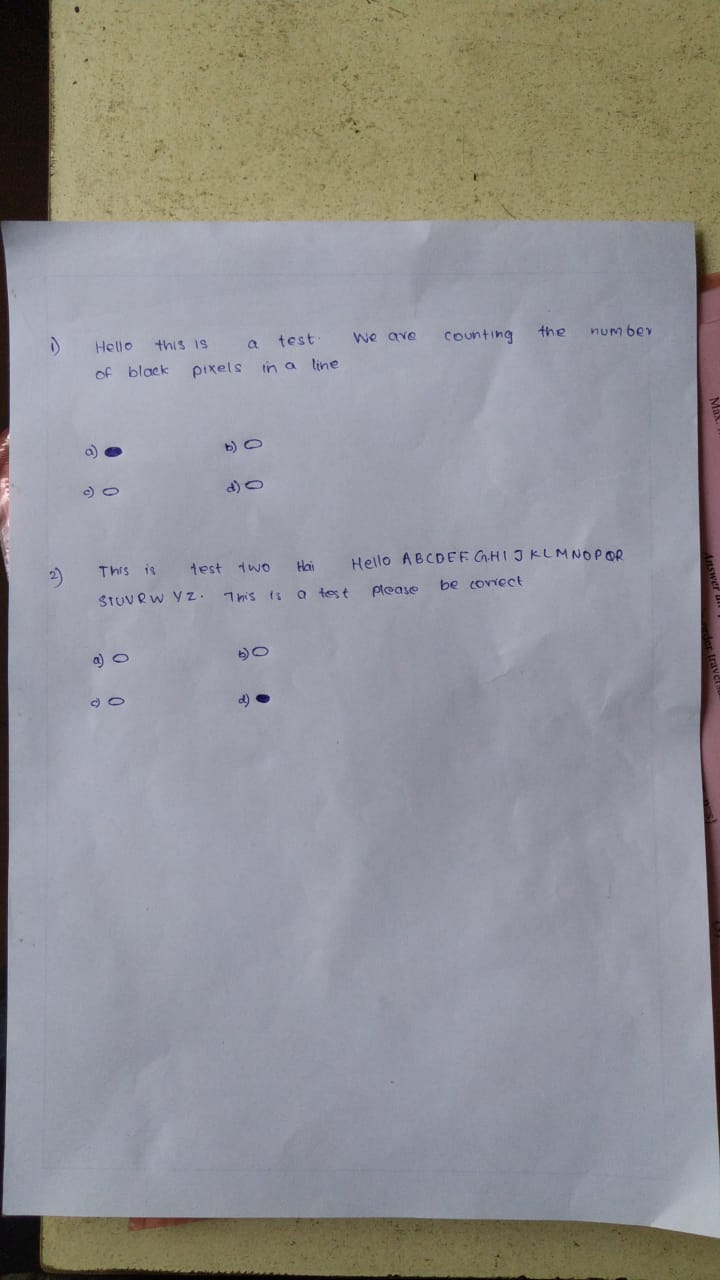 1) Hello this is a test. We are counting the number
of black pixels in a line
a) b)
c) d)
2) This is test two Hai Hello ABCDEFGHIJKLMNOPQR
STUVRW YZ. This is a test please be correct
a) b)
c) d)